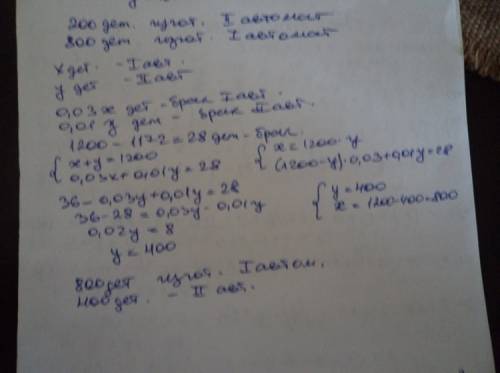 200 дет. изгот. II автомат
800 дет изгот. I автомат
x дет. - I авт.
y дет - II авт
0,03x дет - брак I авт.
0,01y дет - брак II авт.
1200 - 1172 = 28 дет - брак.
{ x+y = 1200
0,03x + 0,01y = 28
{ x = 1200 - y
(1200-y)·0,03+0,01y=28
36 - 0,03y + 0,01y = 28
36 - 28 = 0,03y - 0,01y
0,02y = 8
y = 400
{ y = 400
x = 1200-400=800
800 дет изгот. I автом.
400 дет. - II авт.